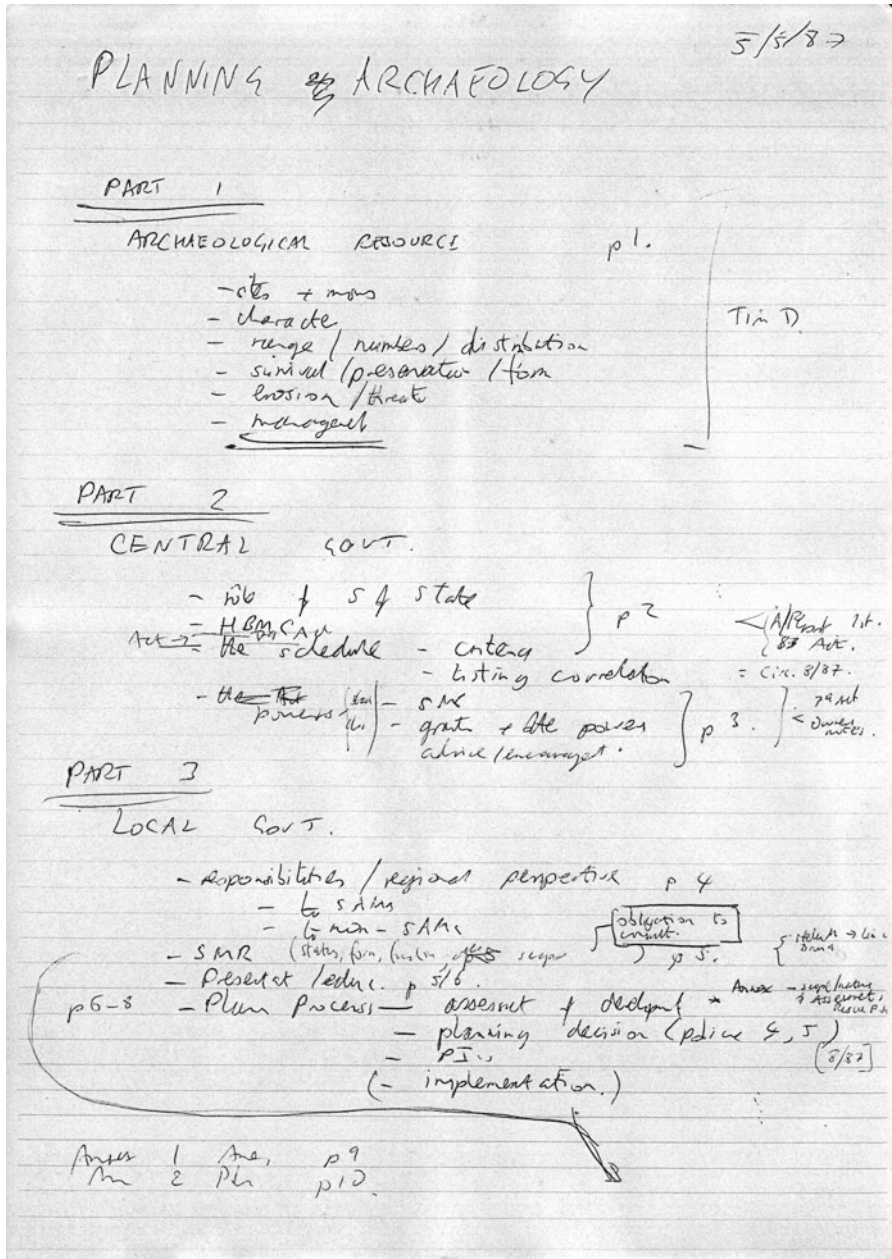 5/5/87
PLANNING & ARCHAEOLOGY
PART 1
ARCHAEOLOGICAL RESOURCE p1.
- sites + mons
- character
- range / numbers / distribution
- survival / preservation / form
- erosion / threats
- management
Tim D.
PART 2
CENTRAL GOVT.
- role of S of State
- HBMC
Act → - the schedule - criteria
- listing correlation
p 2
83 Act.
= Circ. 8/87.
- the Act
powers
- SMC
- grants + other powers
advice / encouragement.
p 3.
79 Act
< Owners notes.
PART 3
LOCAL GOVT.
- responsibilities / regional perspective p 4
- to SAMs
- to non-SAMs
obligation to consult.
- SMR (status, form, function scope) p 5.
- Presentat / educ. p 5/6.
p6-8 - Plann Process - assessment of development * Annex
- planning decision (policies 4, 5)
[8/87]
- PIs
(- implementation.)
Annex 1 p9
Ann 2 p10